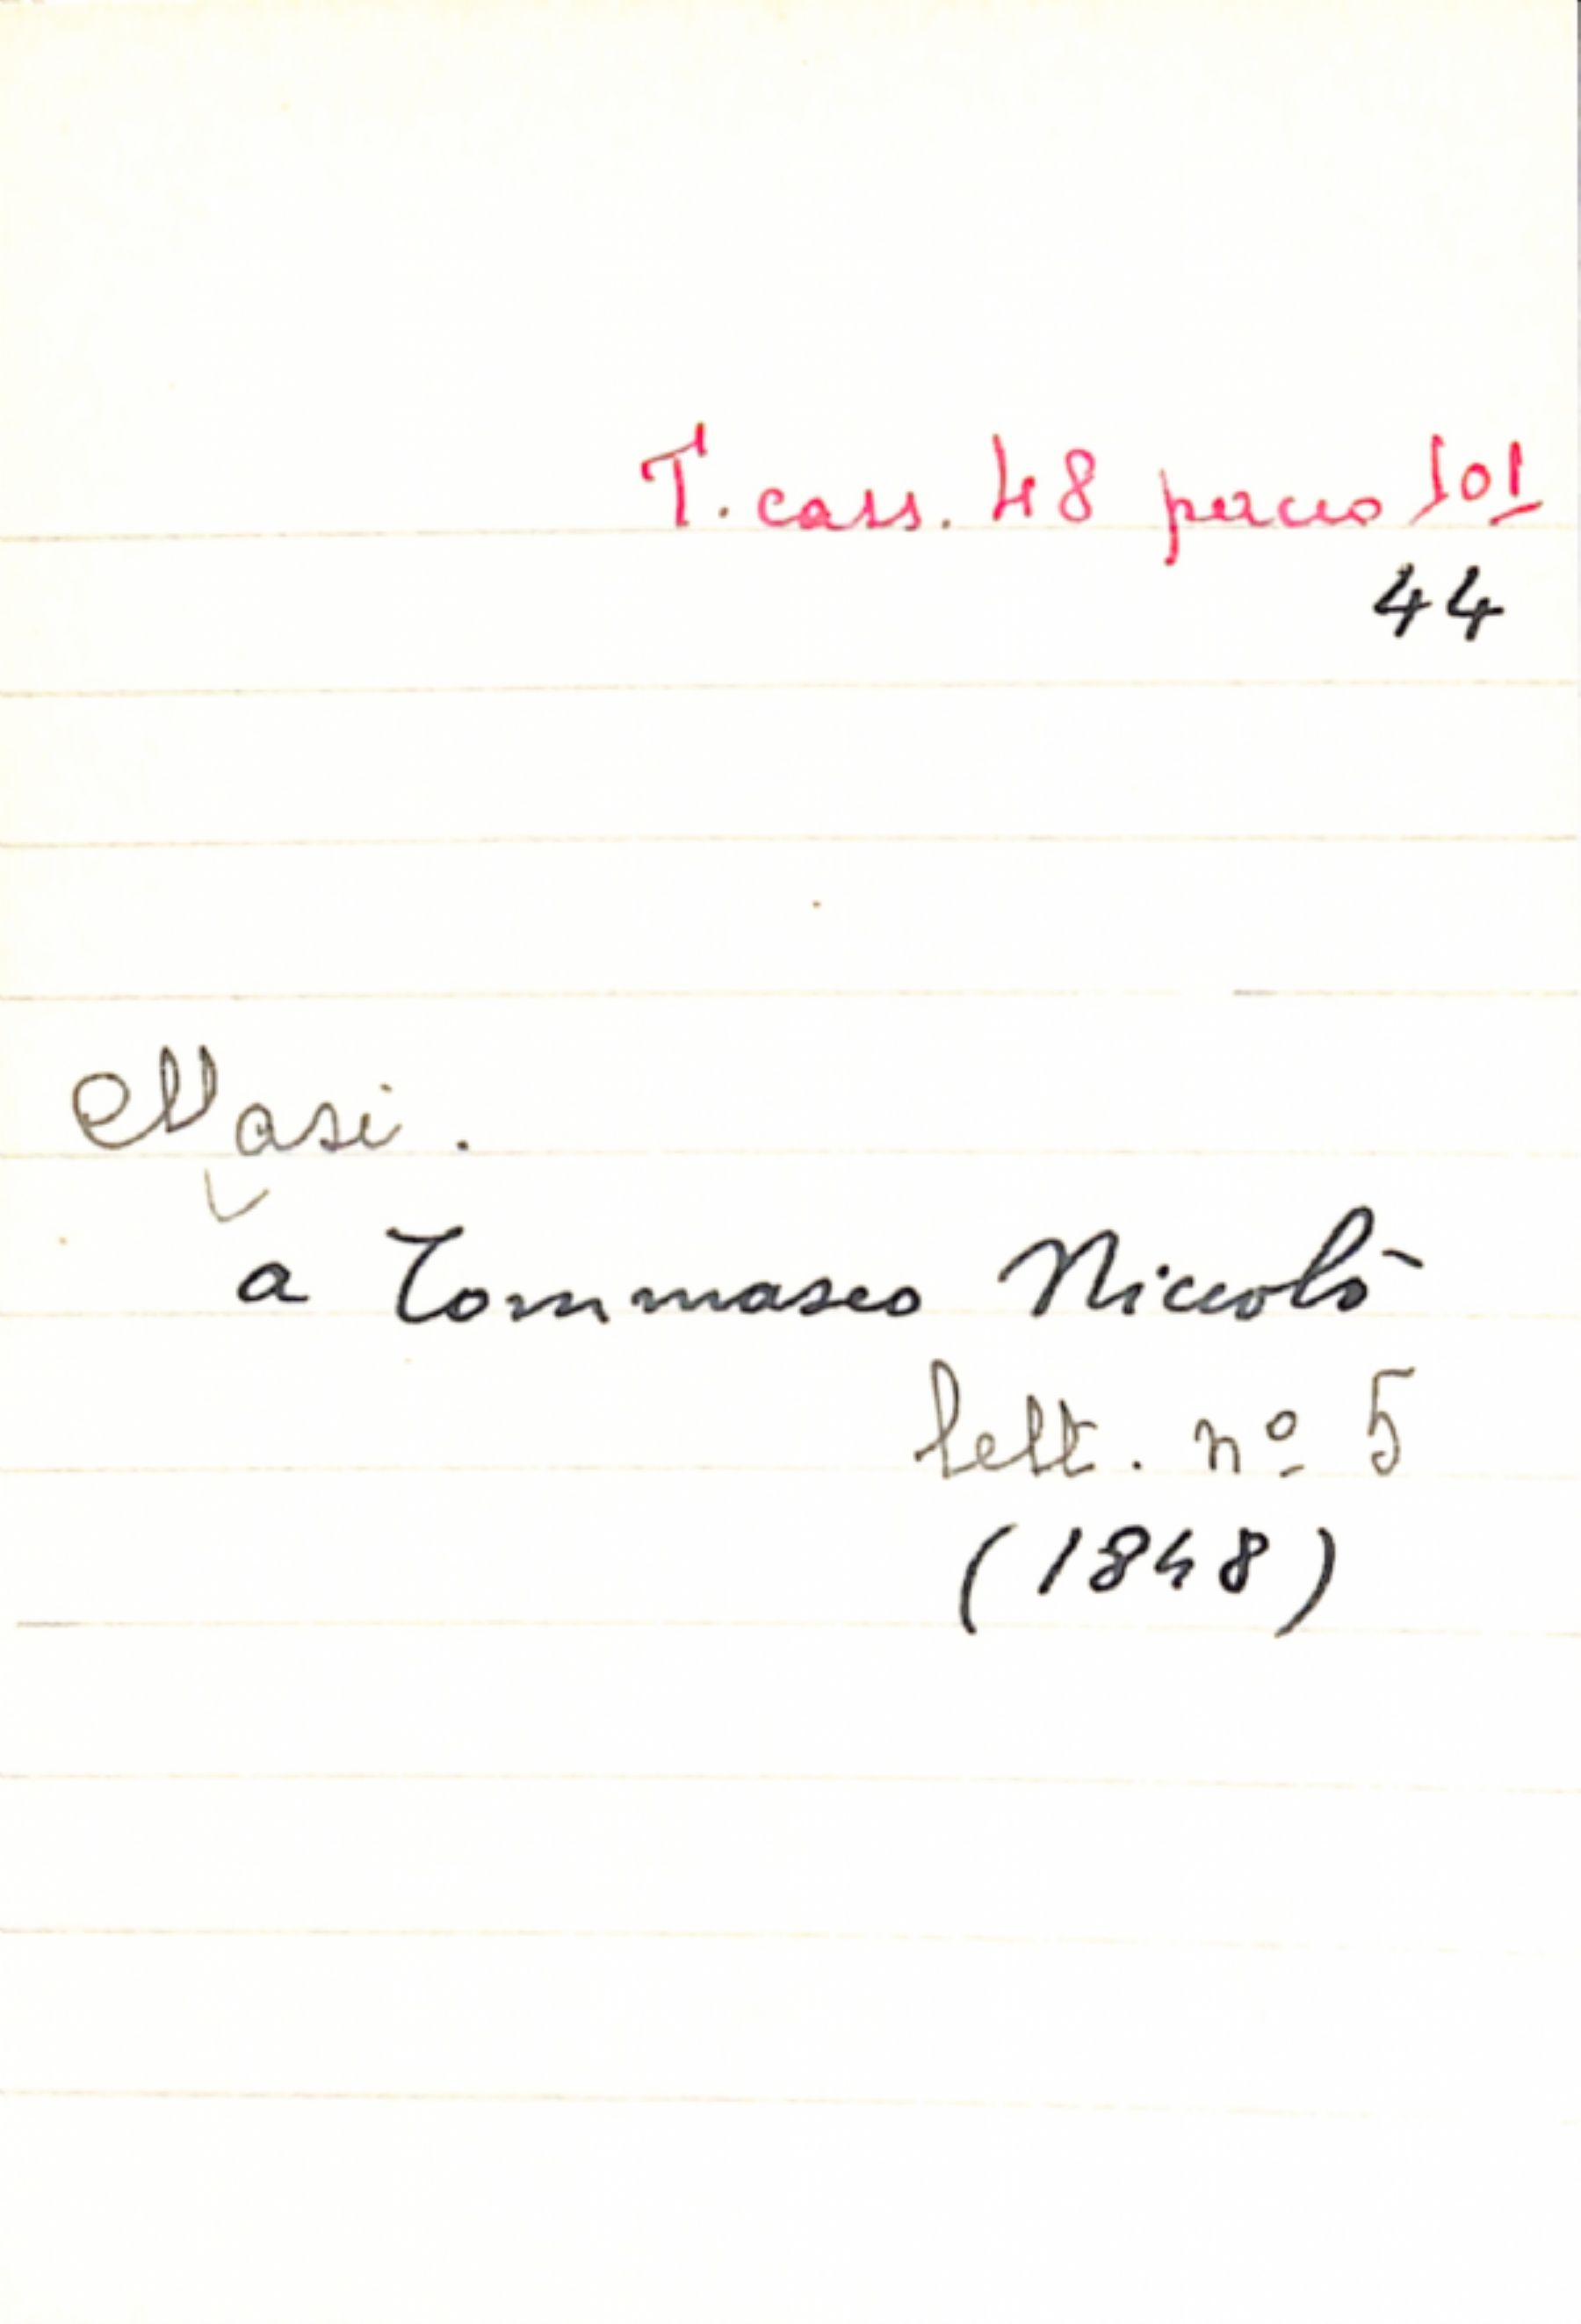 T. cass. 48 pacco 101
44
Masi.
a Tommaseo Niccolò
lett. nº 5
(1848)